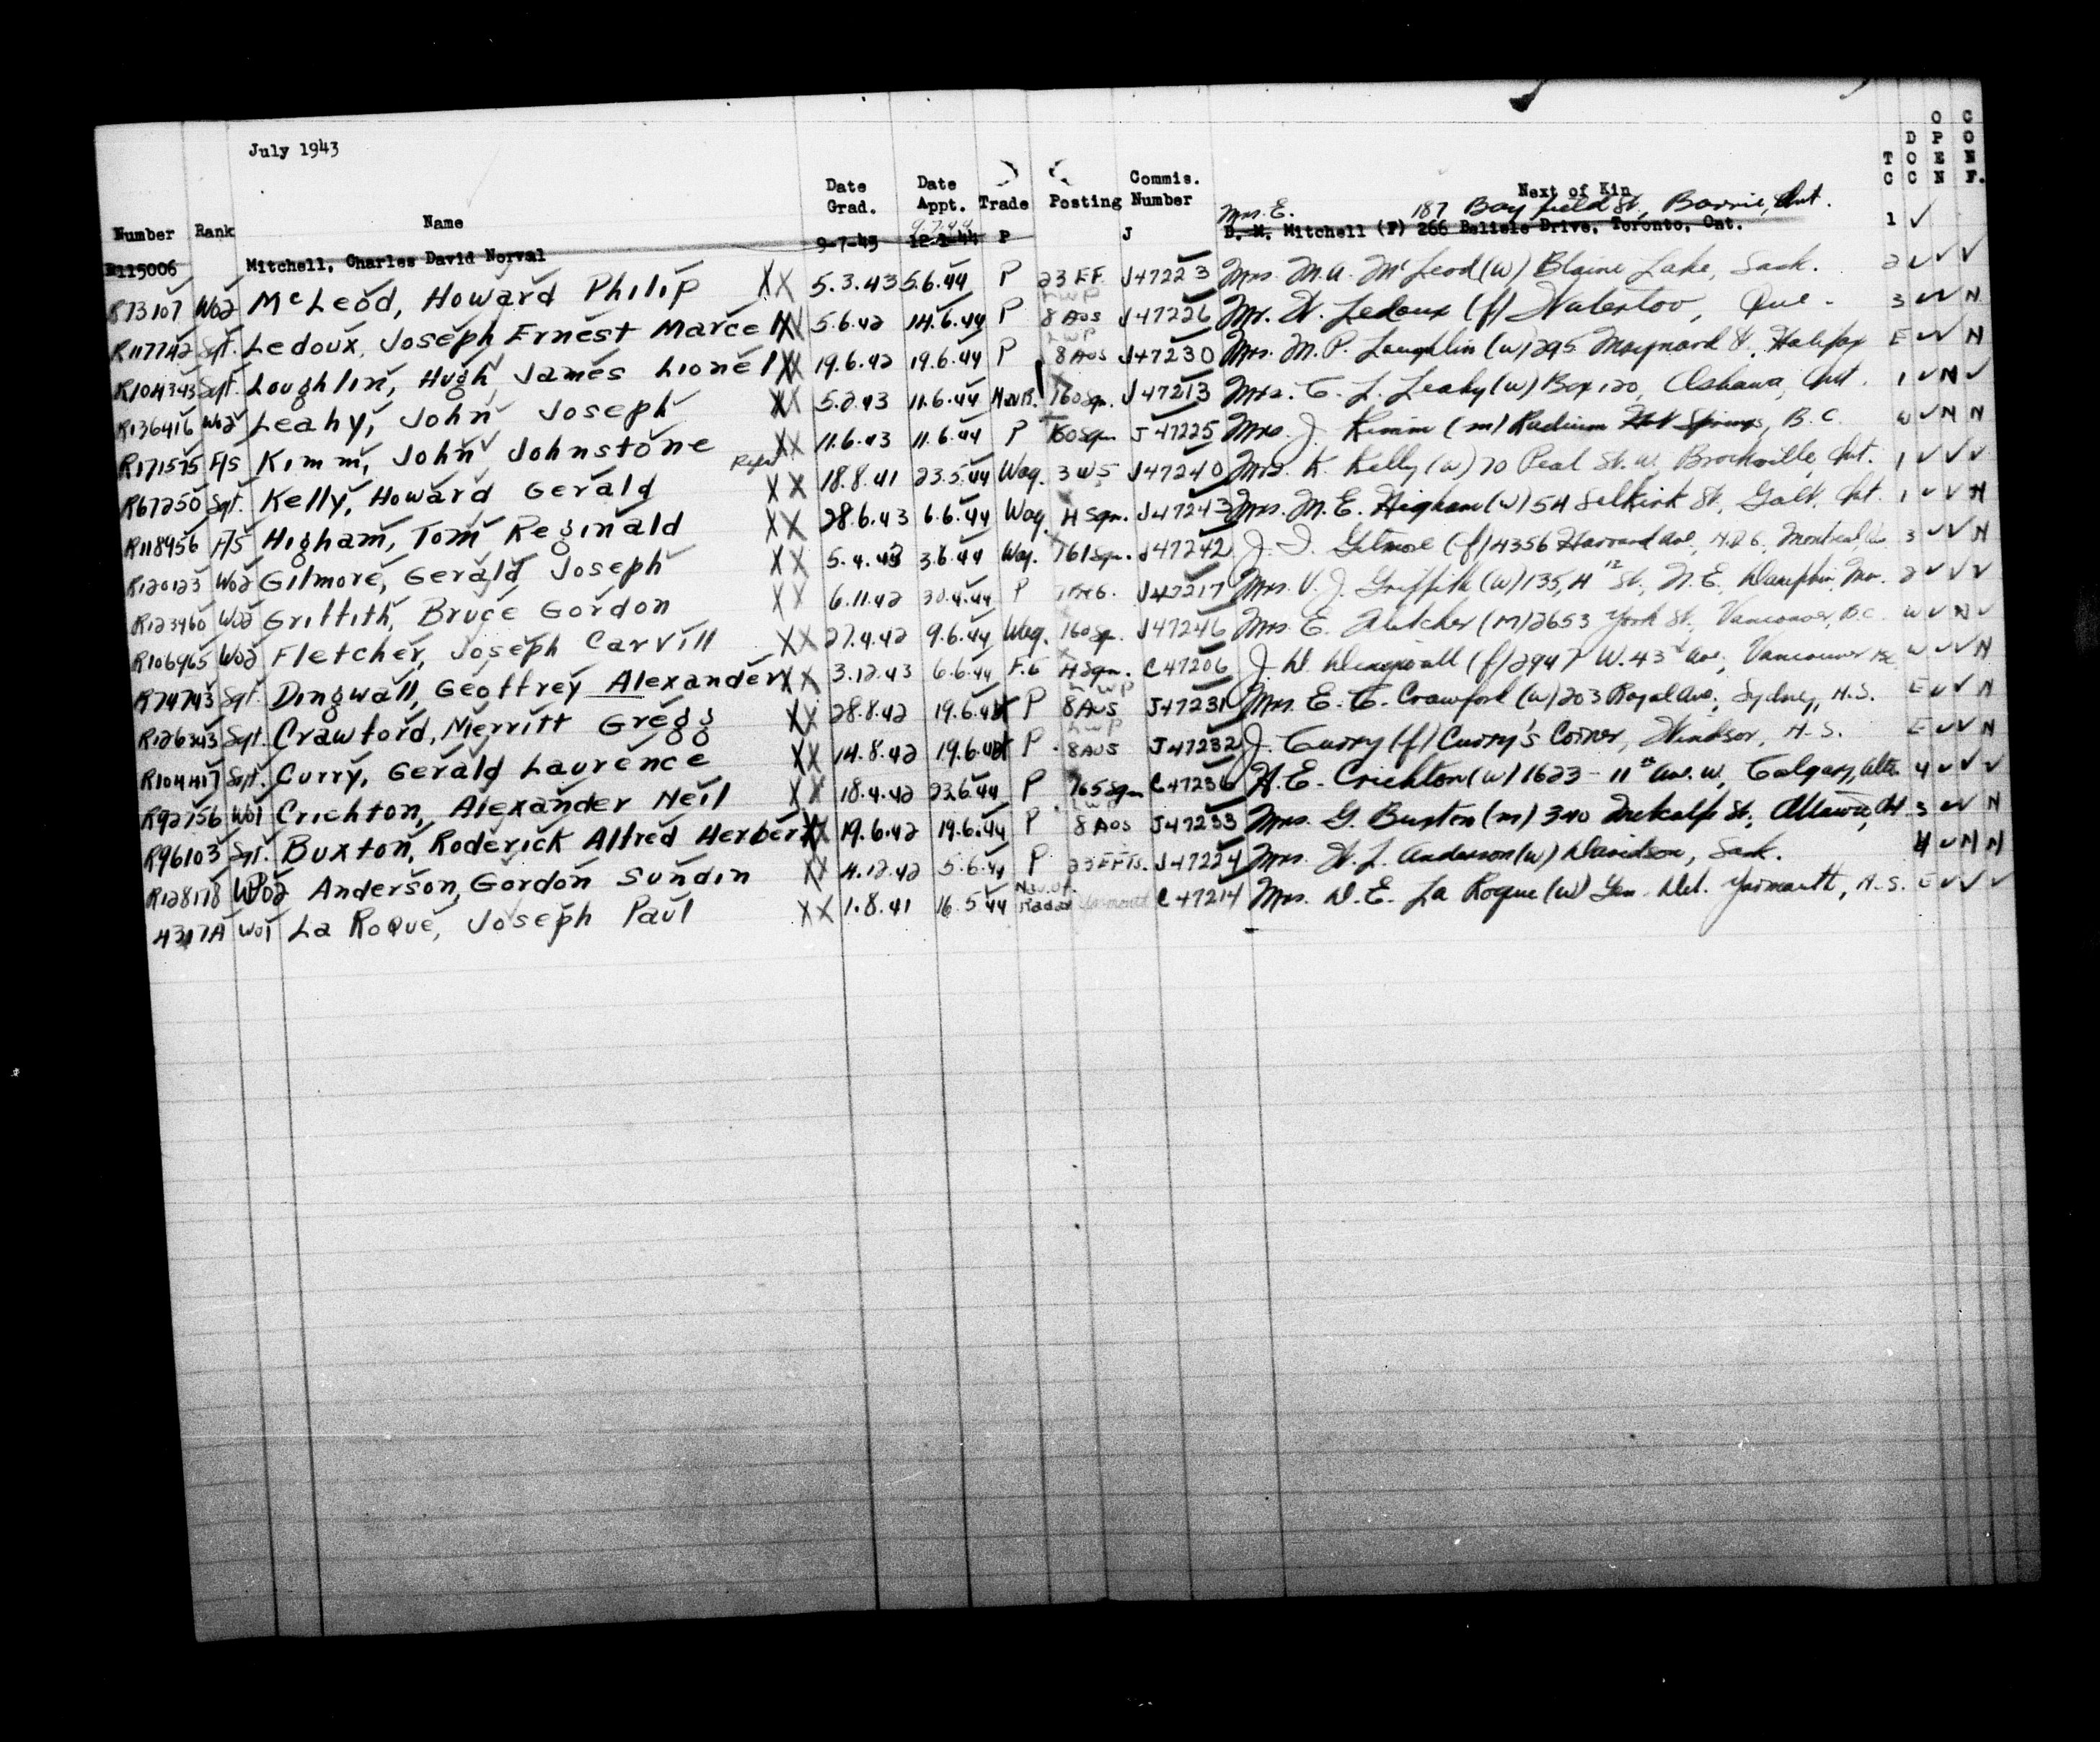 July 1943
O C
D P O
T O E N
C C N F.
Number Rank Name Date Grad. Date Appt. Trade Posting Commis. Number Next of Kin
Mrs. E. 187 Bayfield St., Barrie, Ont.
R115006 Mitchell, Charles David Norval 9-7-43 9.7.44 P J B. M. Mitchell (F) 266 Belisle Drive, Toronto, Ont. 1 ✓
R73107 W02 McLeod, Howard Philip XX 5.3.43 5.6.44 P 23 EF. J47223 Mrs. M.A. McLeod (W) Blaine Lake, Sask. 2 ✓ ✓ ✓
R117742 Sgt. Ledoux, Joseph Ernest Marcel XX 5.6.42 14.6.44 P LWP 8 AOS J47226 Mr. W. Ledoux (f) Waterloo, Que. 3 ✓ ✓ N
R104343 Sgt. Loughlin, Hugh James Lionel XX 19.6.42 19.6.44 P LWP 8 AOS J47230 Mrs. M.P. Loughlin (W) 295 Maynard St, Halifax E ✓ ✓ N
R136416 W02 Leahy, John Joseph XX 5.2.43 11.6.44 Nav.B. 160 Sqn. J47213 Mrs. C. L. Leahy (W) Box 120, Oshawa, Ont. 1 ✓ N ✓
R171575 F/S Kimm, John Johnstone XX 11.6.43 11.6.44 P 160 Sqn J47225 Mrs. J. Kimm (m) Radium Hot Springs, B.C. W ✓ N N
R67250 Sgt. Kelly, Howard Gerald XX 18.8.41 23.5.44 Wag. 3 WS J47240 Mrs. K. Kelly (W) 70 Peal St. W. Brockville, Ont. 1 ✓ ✓ ✓
R118956 F/S Higham, Tom Reginald XX 28.6.43 6.6.44 Wag H Sqn. J47243 Mrs. M.E. Higham (W) 54 Selkirk St, Galt, Ont. 1 ✓ ✓ N
R120123 W02 Gilmore, Gerald Joseph XX 5.4.43 3.6.44 Wag. 161 Sqn. J47242 J. I. Gilmore (f) 4356 Harvard Ave, N.D.G. Montreal, Qu 3 ✓ ✓ N
R123960 W02 Griffith, Bruce Gordon XX 6.11.42 30.4.44 P J47217 Mrs. V. J. Griffith (W) 135, 4th St. N.E. Dauphin, Man. 2 ✓ ✓ ✓
R106965 W02 Fletcher, Joseph Carvill XX 27.4.42 9.6.44 Wag. 160 Sqn. J47246 Mrs. E. Fletcher (M) 2653 York St, Vancouver, B.C. W ✓ N ✓
R74743 Sgt. Dingwall, Geoffrey Alexander XX 3.12.43 6.6.44 F.E H Sqn. C47206 J. D. Dingwall (f) 2947 W. 43rd Ave, Vancouver BC W ✓ ✓ N
R126343 Sgt. Crawford, Merritt Gregg XX 28.8.42 19.6.44 P LWP 8 AOS J47231 Mrs. E. C. Crawford (W) 203 Royal Ave, Sydney, N.S. E ✓ ✓ N
R104417 Sgt. Curry, Gerald Laurence XX 14.8.42 19.6.44 P LWP 8 AOS J47232 J. Curry (f) Curry's Corner, Windsor, N.S. E ✓ ✓ N
R92756 W01 Crichton, Alexander Neil XX 18.4.42 22.6.44 P 165 Sqn C47236 H. E. Crichton (W) 1623-11th Ave. W, Calgary, Alta 4 ✓ ✓ ✓
R96103 Sgt. Buxton, Roderick Alfred Herbert XX 19.6.42 19.6.44 P LWP 8 AOS J47233 Mrs. G. Buxton (m) 340 Metcalfe St, Ottawa, Ont 3 ✓ ✓ N
R128178 W02 Anderson, Gordon Sundin XX 4.12.42 5.6.44 P 23 EFTS. J47224 Mrs. W. L. Anderson (W) Davidson, Sask. 4 ✓ N N
4317A W01 La Roque, Joseph Paul XX 1.8.41 16.5.44 Radar Yarmouth C47214 Mrs. D. E. La Roque (W) Gen. Del. Yarmouth, N.S. E ✓ ✓ ✓